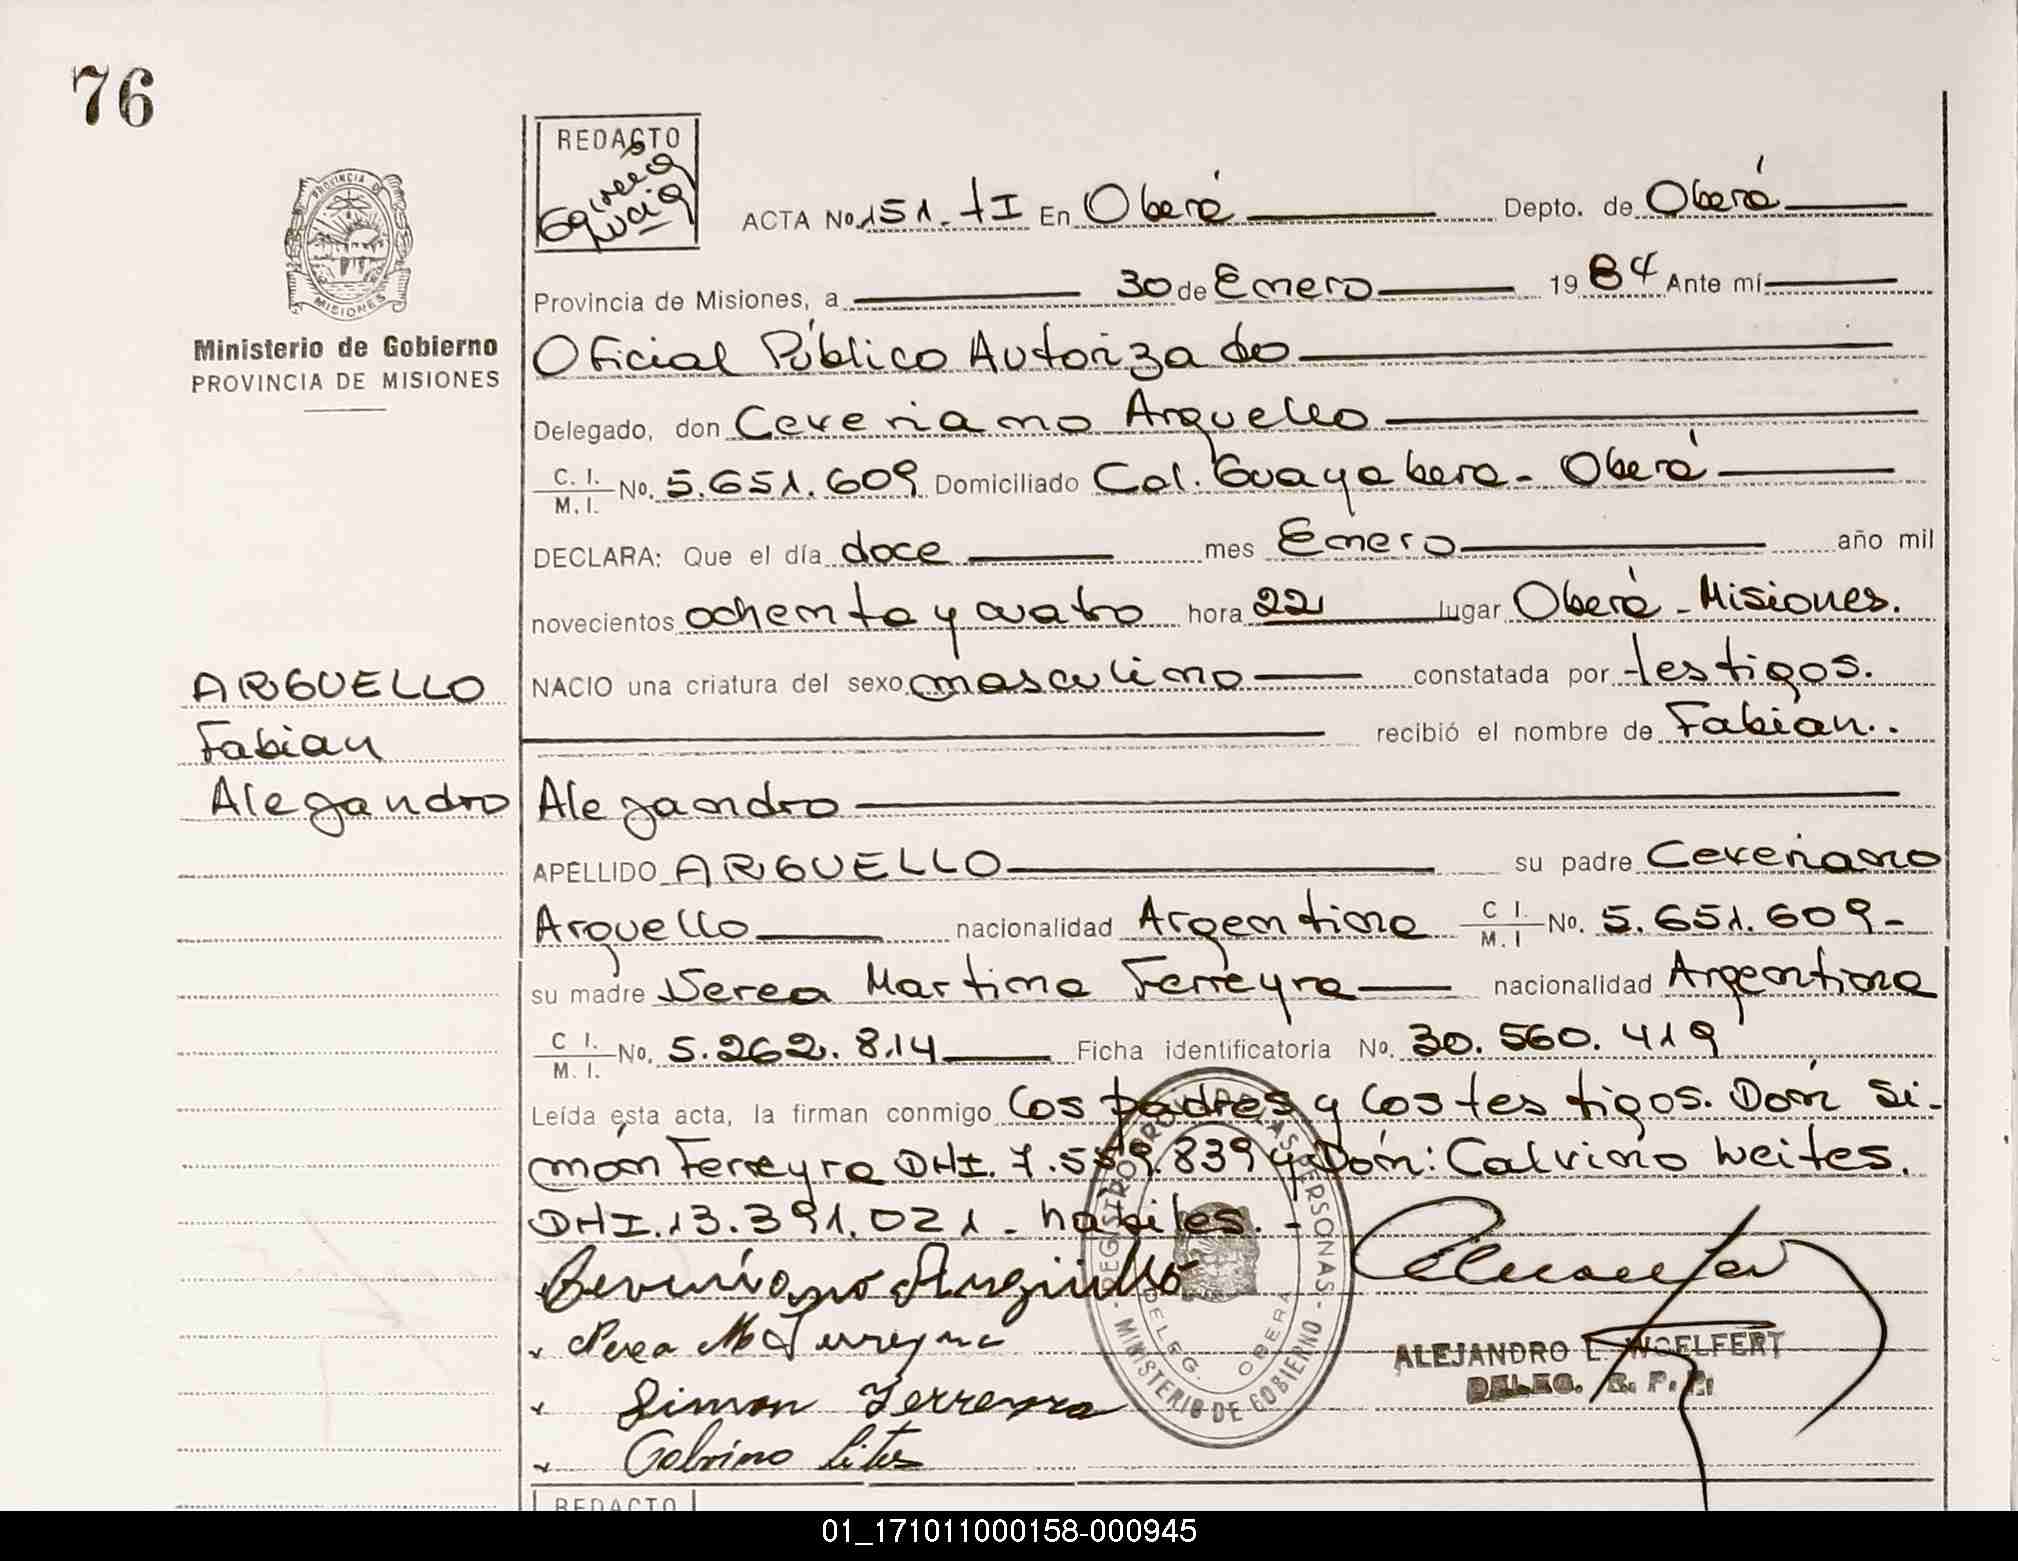 76
REDACTO
ACTA No. 151. tI En Oberá Depto. de Oberá
Provincia de Misiones, a 30 de Enero 1984 Ante mí
Ministerio de Gobierno
PROVINCIA DE MISIONES
Oficial Público Autorizado
Delegado, don Cereriano Arguello
C. I. M. I. No. 5.651.609 Domiciliado Col. Guayabera - Oberá
DECLARA: Que el día doce mes Enero año mil
novecientos ochenta y cuatro hora 22 lugar Oberá - Misiones.
ARGUELLO
Fabian
Alejandro
NACIO una criatura del sexo masculino constatada por testigos.
recibió el nombre de Fabian..
Alejandro
APELLIDO ARGUELLO su padre Cereriano
Arguello nacionalidad Argentino C I. M. I No. 5.651.609-
su madre Nerea Martina Ferreyra nacionalidad Argentina
C I. M. I. No. 5.262.814 Ficha identificatoria No. 30.560.419
Leída esta acta, la firman conmigo los padres y los testigos. Don Si-
món Ferreyra DNI. 7.559.839 y Don: Calvino Weites.
DNI. 13.391.021 - habiles. -
REGISTRO PROV. DE LAS PERSONAS - MINISTERIO DE GOBIERNO -
DELEG. OBERA
Nerea M Ferreyra
Simon Ferreyra
Calvino Lites
ALEJANDRO L. WOELFERT
DELEG. R. P. P.
REDACTO
01_171011000158-000945